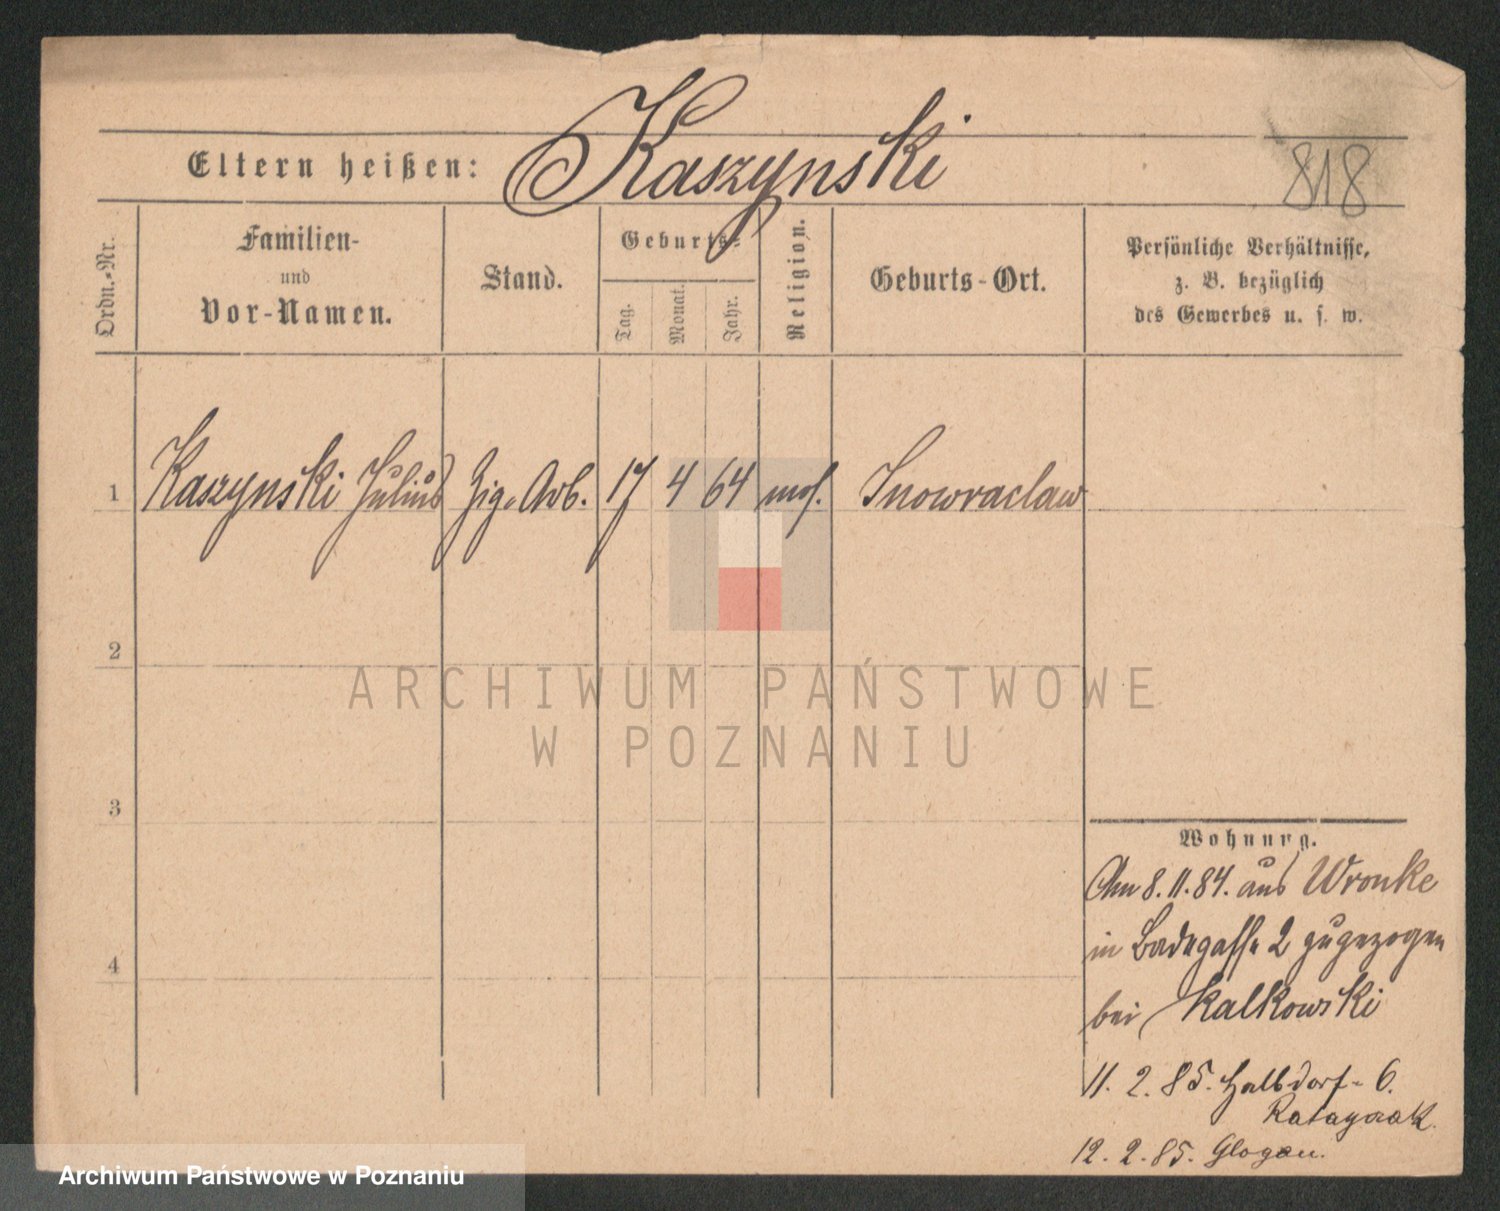 Eltern heißen: Kaszynski
818
Ordn.-Nr.
Familien-
und
Vor-Namen.
Stand.
Geburts-
Tag.
Monat.
Jahr.
Religion.
Geburts-Ort.
Persönliche Verhältnisse,
z. B. bezüglich
des Gewerbes u. s. w.
1 Kaszynski Julius Zig. Arb. 17 4 64 mos. Inowraclaw
2
ARCHIWUM PAŃSTWOWE
W POZNANIU
3
Wohnung.
Am 8.11.84. aus Wronke
in Badegasse 2 zugezogen
4
bei Kalkowski
11. 2. 85. Halbdorf- 6.
Ratayczak.
12. 2. 85. Glogau.
Archiwum Państwowe w Poznaniu